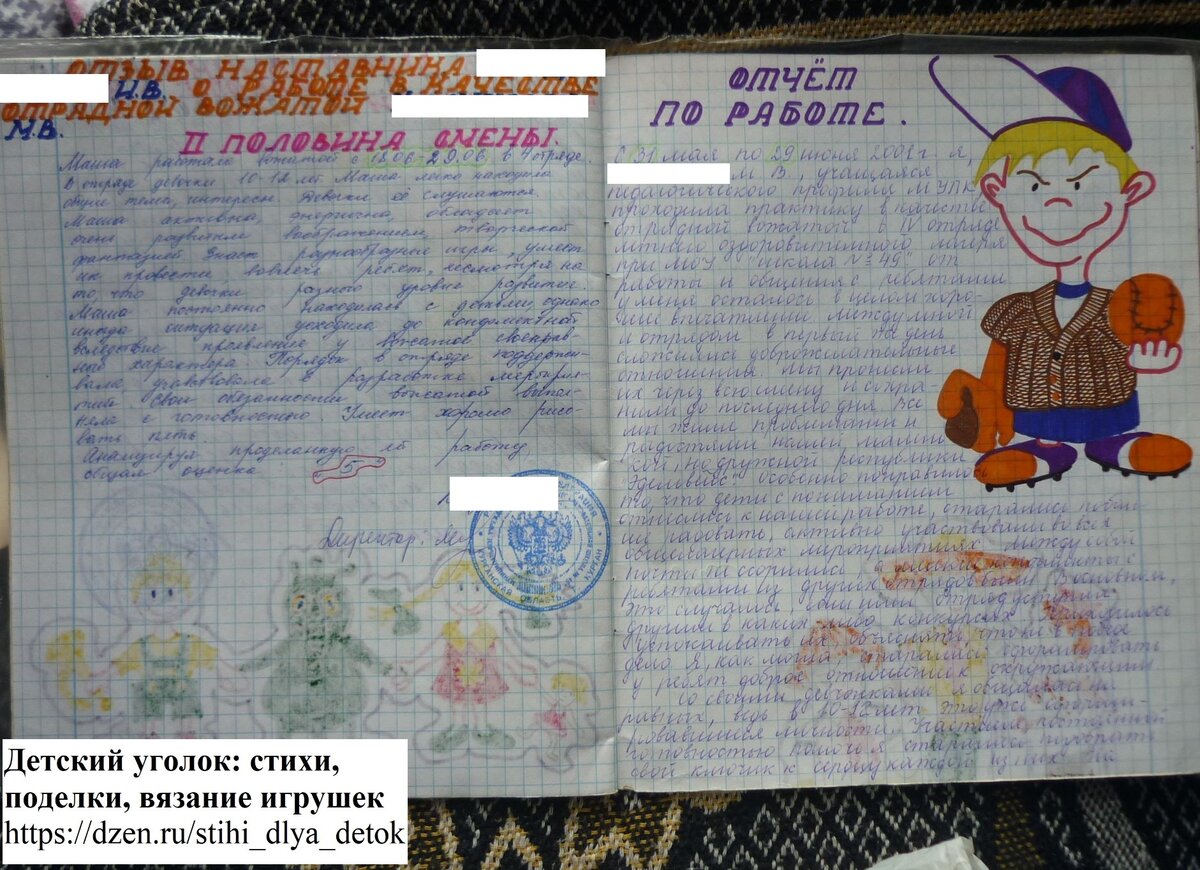 ОТЗЫВ НАСТАВНИКА
И.В. О РАБОТЕ В КАЧЕСТВЕ
ОТРЯДНОЙ ВОЖАТОЙ
М.В.
II ПОЛОВИНА СМЕНЫ.
Маша работала вожатой с 18.06-29.06 в 4 отряде.
В отряде девочки 10-12 лет Маша легко находила
общие темы, интересы. Девочки её слушаются.
Маша активна, энергична, обладает
очень развитым воображением, творческой
фантазией Знает разнообразные игры, умеет
их провести вовлечь ребят, несмотря на
то, что девочки разного уровня развития.
Маша постоянно находилась с детьми однако
иногда ситуация доходила до конфликтной
вследствие проявление у вожатой своенрав-
ные характера Порядок в отряде поддержи-
вала участвовала в разработке мероприя-
тий Свои обязанности вожатой выпол-
няла с готовностью Умеет хорошо рисо-
вать петь.
Анализируя проделанную ей работу,
общая оценка 5
Директор:
ОТЧЁТ
ПО РАБОТЕ.
С 31 мая по 29 июня 2001 г. я,
М В, учащаяся
педагогического профиля МУПК
проходила практику в качестве
отрядной вожатой в IV отряде
летнего оздоровительного лагеря
при МОУ "Школа № 49" от
работы и общения с ребятами
у меня осталось в целом хоро-
шие впечатлии между мной
и отрядом в первый же день
сложились доброжелательные
отношения. Мы пронесли
их через всю смену и сохра-
нили до последнего дня. Все
мы жили проблемами и
радостями нашей малень-
кой, но дружной республики
"Эдельвейс" особенно понравилось
то, что дети с пониманием
отнеслись к нашей работе, старались
их радовать, активно участвовали во всех
общелагерных мероприятиях между
почти не ссорились, а
ребятами из других отрядов были В основном,
это случалось, если наш отряд уступил
другим в каких либо конкурсах Приходилось
успокаивать их объяснять, что не в победе
дело Я, как могла, старалась сформировать
у ребят доброе отношение к окружающим
Со своими девчонками я общалась на
равных, ведь в 10-12 лет это уже сформи-
ровавшиеся личности. Участием постоянной
готовностью помочь я старалась подобрать
свой ключик к сердцу каждой из них
Детский уголок: стихи,
поделки, вязание игрушек
https://dzen.ru/stihi_dlya_detok